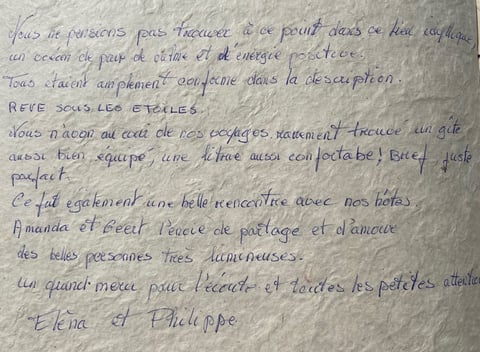 Nous ne pensions pas trouver à ce point dans ce lieu idyllique
un océan de paix de calme et d'énergie positive.
Tous étaient amplement conforme dans la description.
REVE SOUS LES ETOILES.
Nous n'avon au cour de nos voyages rarement trouvé un gîte
aussi bien équipé, une literie aussi confortabe! Bref, juste
parfait.
Ce fut également une belle rencontre avec nos hôtes.
Amanda et Geert l'envie de partage et d'amour
des belles personnes très lumineuses.
un grand merci pour l'écoute et toutes les petites attentio
Eléna et Philippe